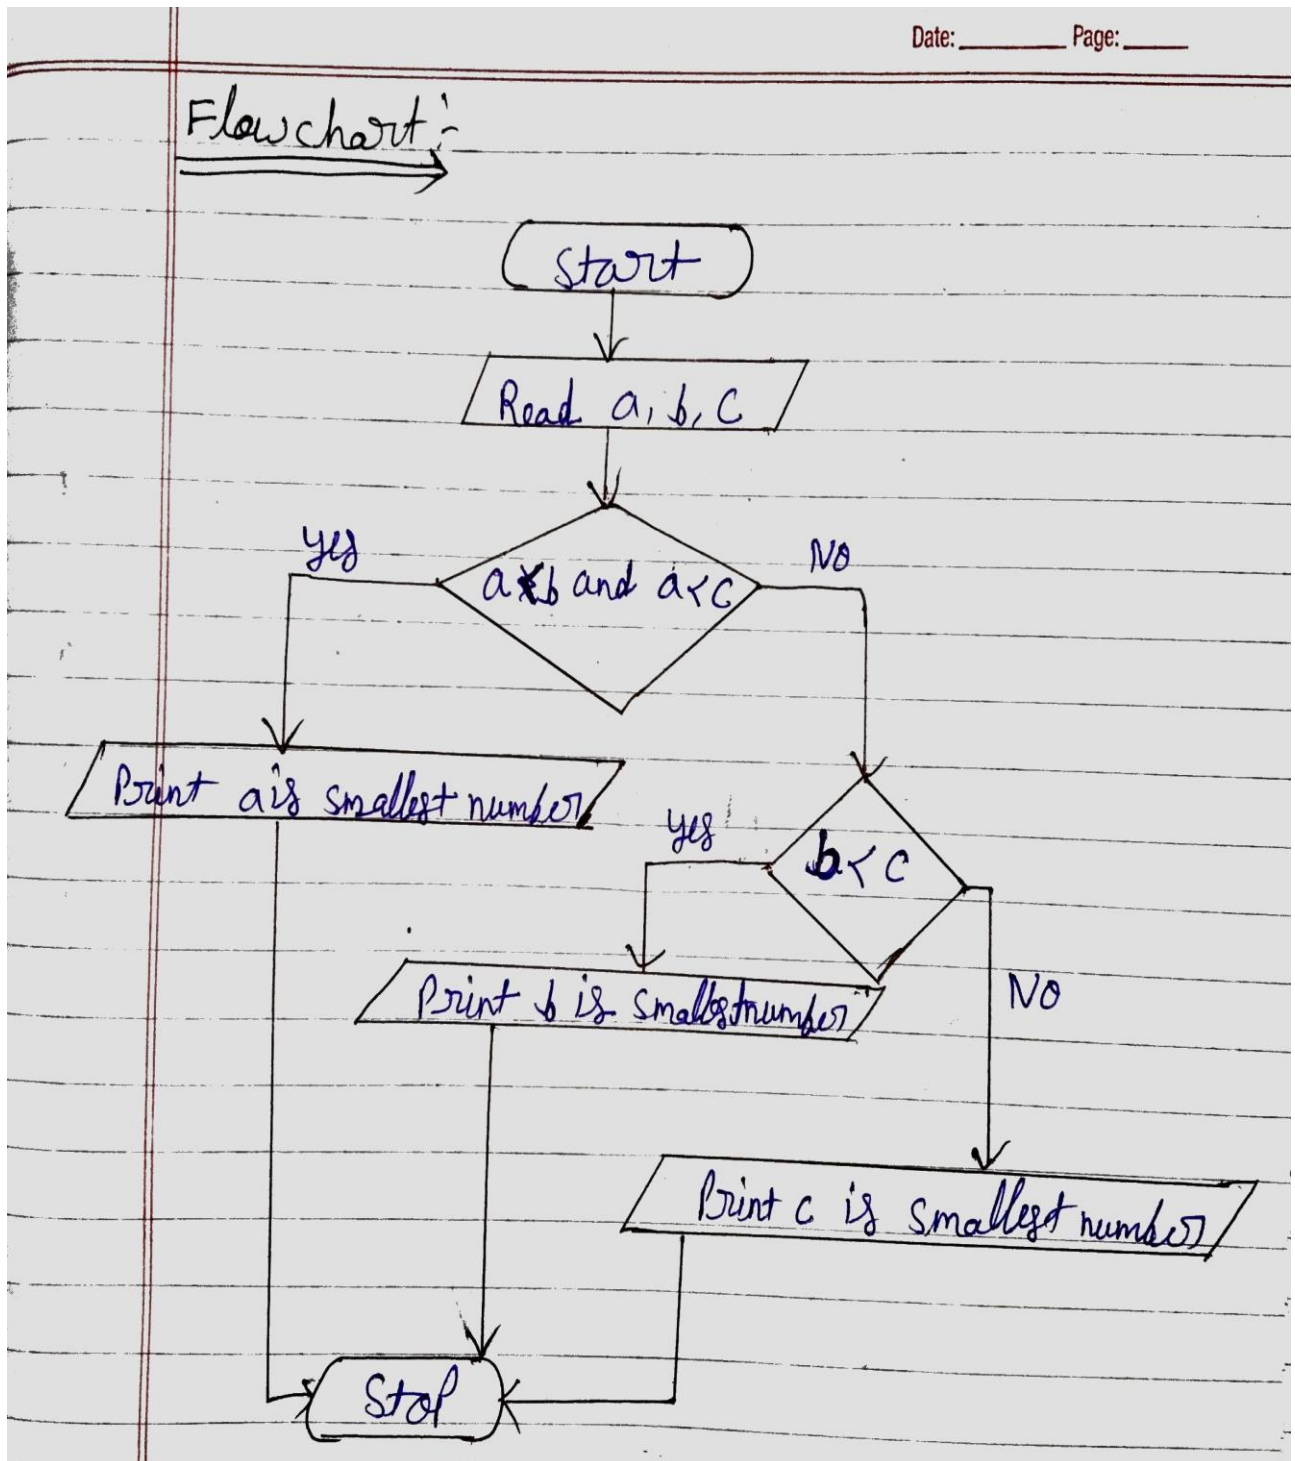 Date: Page:
Flowchart:-
Start
Read a, b, c
Yes
No
a<b and a<c
Print a is smallest number
Yes
b<c
No
Print b is smallest number
Print c is smallest number
Stop